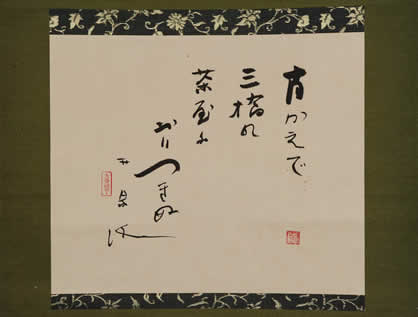 青かえで
三橋の
茶屋に
おりつきぬ